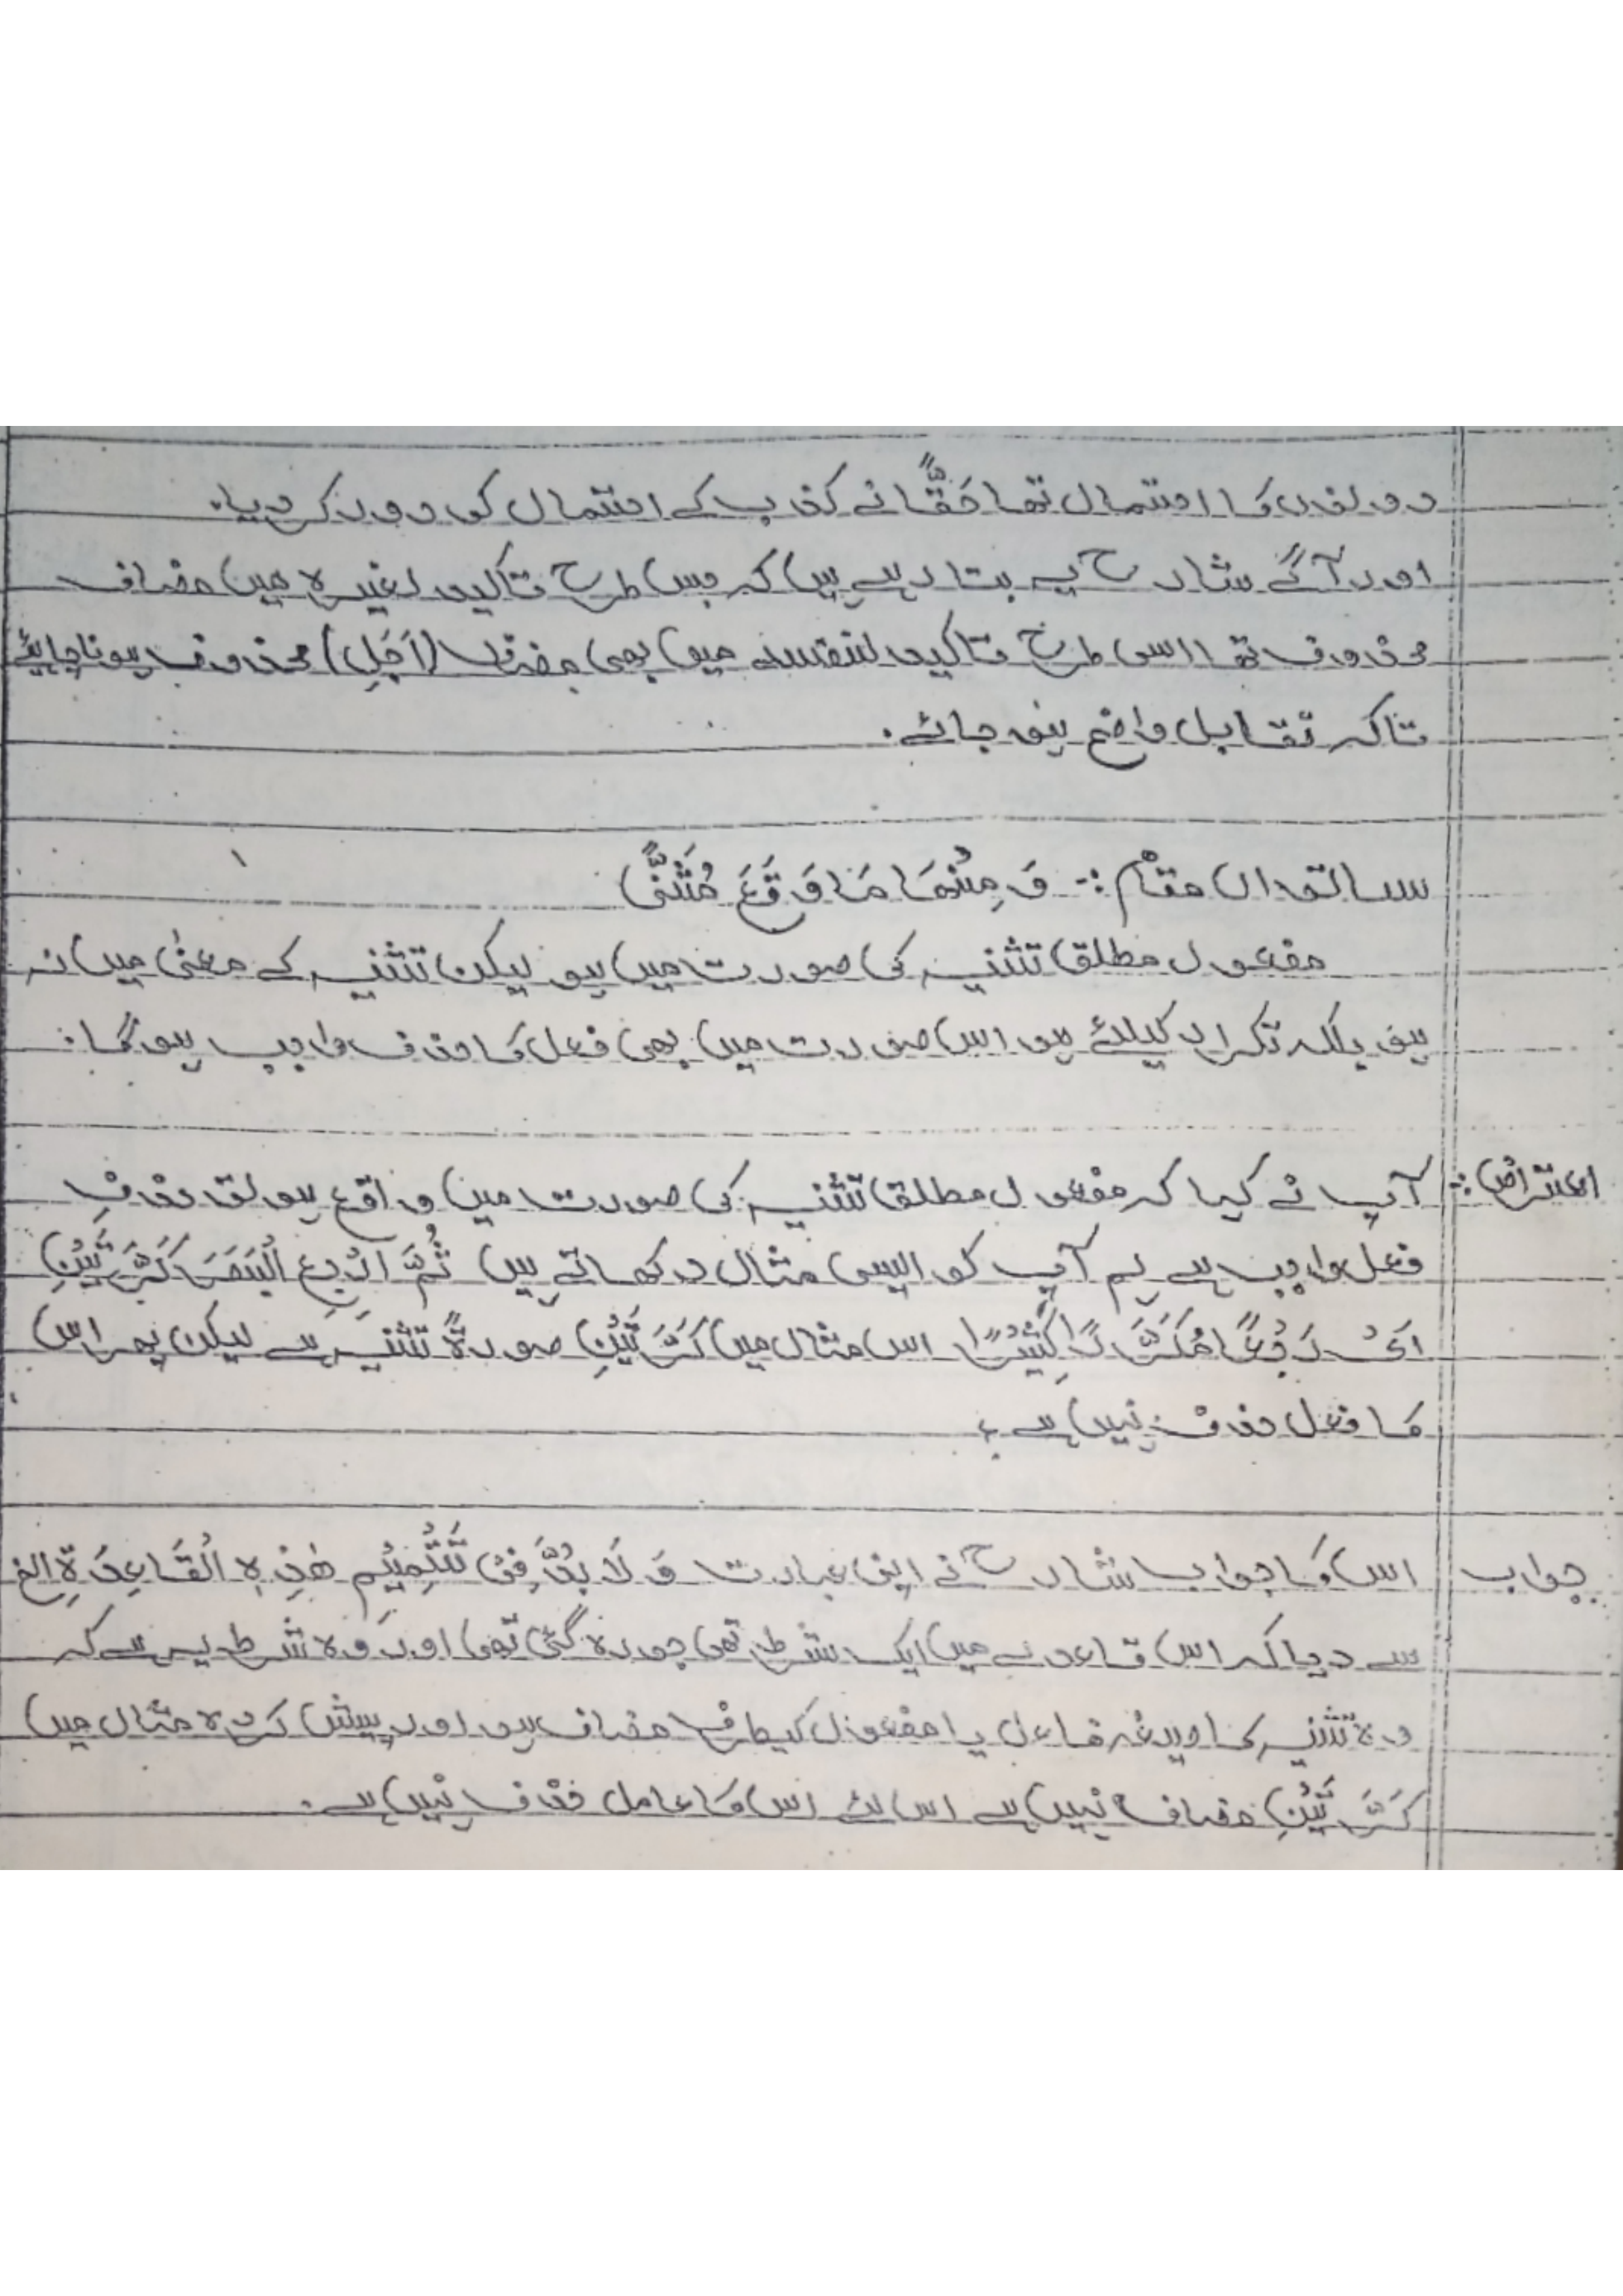 دونوں کا احتمال تھا حَقًّا نے کذب کے احتمال کو دور کر دیا۔
اور آگے شارحؒ یہ بتا رہے ہیں کہ جس طرح تاکید لغیرہ میں مضاف
محذوف تھا اسی طرح تاکید لنفسہ میں بھی مضاف (اَجَلِ) محذوف ہونا چاہئے
تاکہ تقابل واضح ہو جائے۔
ساتواں مقام :- وَ مِنْهَا مَا وَقَعَ مُثَنًّى
مفعول مطلق تثنیہ کی صورت میں ہو لیکن تثنیہ کے معنیٰ میں نہ
ہو بلکہ تکرار کیلئے ہو اس صورت میں بھی فعل کا حذف واجب ہوگا:
اعتراض :- آپ نے کہا کہ مفعول مطلق تثنیہ کی صورت میں واقع ہو تو حذف
فعل واجب ہے ہم آپ کو ایسی مثال دکھاتے ہیں ثُمَّ ارْجِعِ الْبَصَرَ كَرَّتَيْنِ
اَیْ رَجْعًا مُكَرَّرًا كَثِيْرًا اس مثال میں كَرَّتَيْنِ صورۃً تثنیہ ہے لیکن پھر اس
کا فعل حذف نہیں ہے ؟
جواب اس کا جواب شارحؒ نے اپنی عبارت وَ لَا بُدَّ فِیْ تَتْمِيْمِ هٰذِهِ الْقَاعِدَةِ الخ
سے دیا کہ اس قاعدے میں ایک شرط تھی جو رہ گئی تھی اور وہ شرط یہ ہے کہ
وہ تثنیہ کا صیغہ فاعل یا مفعول کیطرف مضاف ہو اور پیش کردہ مثال میں
كَرَّتَيْنِ مضاف نہیں ہے اس لئے اس کا عامل حذف نہیں ہے۔